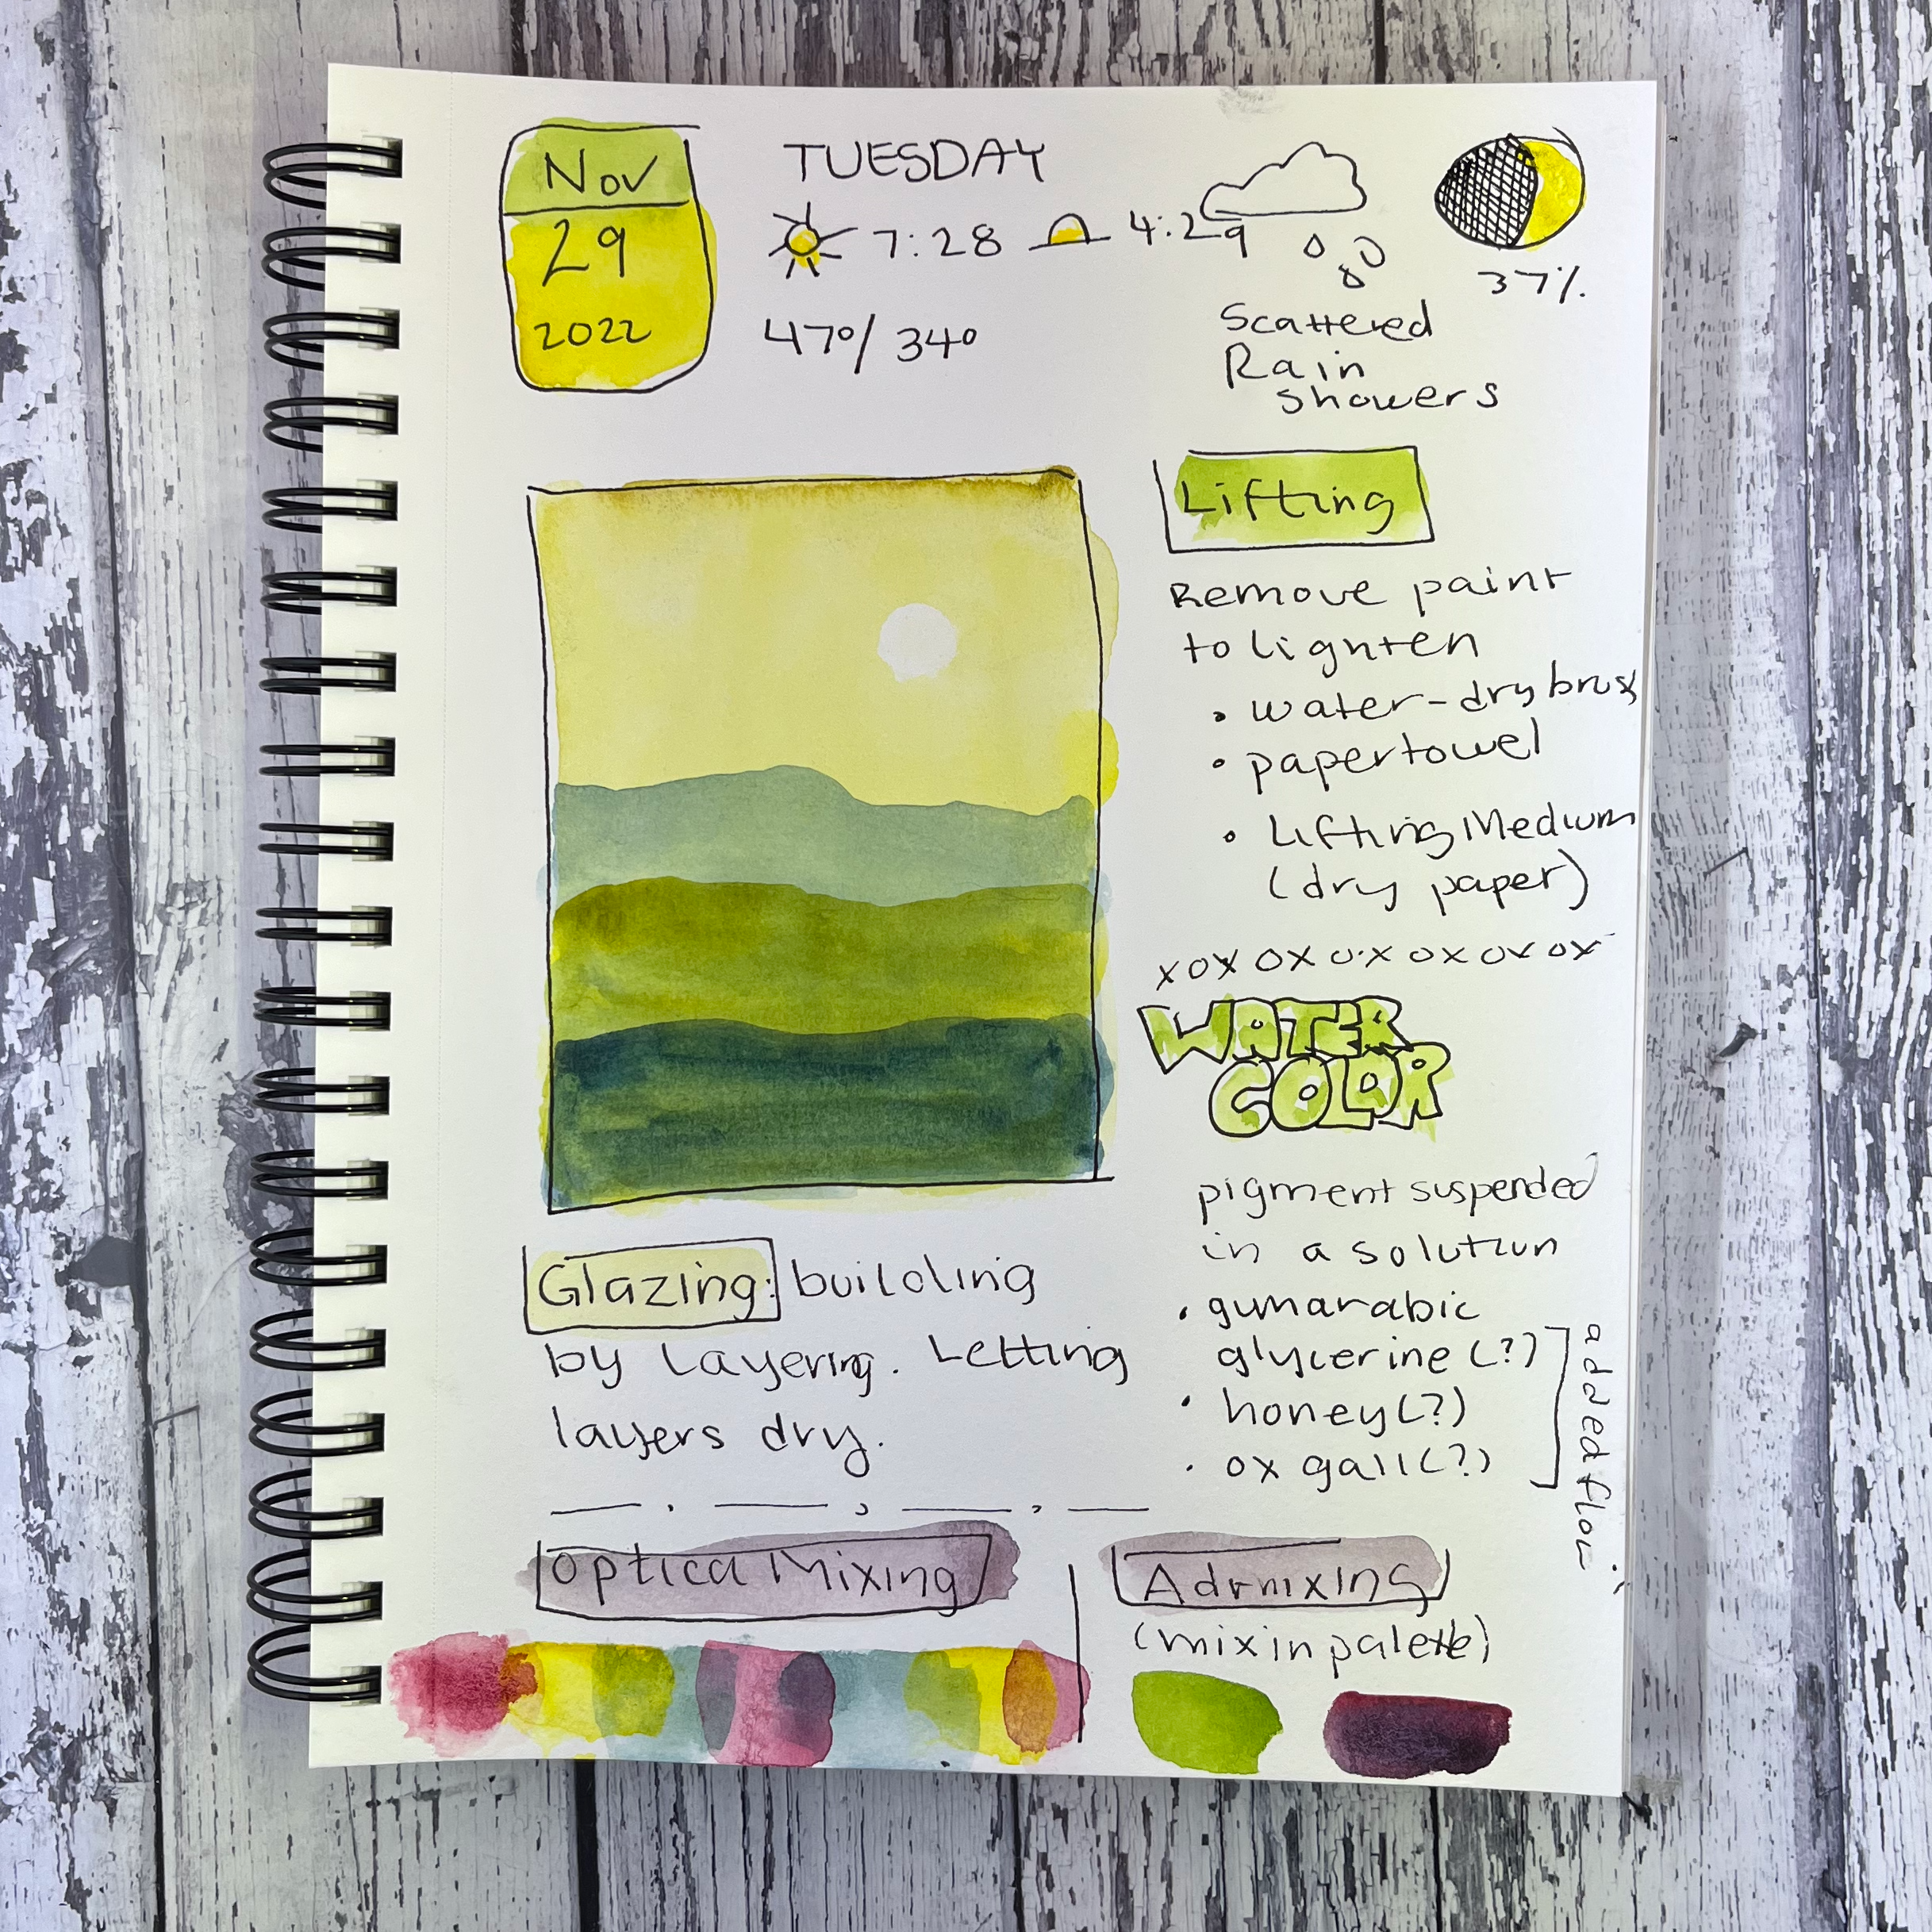 Nov
29
2022
TUESDAY
7:28 4:29
47°/ 34°
37%
Scattered
Rain
showers
Lifting
Remove paint
to lighten
• water-dry brush
• papertowel
• Lifting Medium
(dry paper)
XOX OX OX OX OX OX
WATER
COLOR
pigment suspended
in a solution
• gumarabic
glycerine (?)
• honey (?)
• ox gall (?)
added flow
Glazing: building
by Layering. Letting
layers dry.
Optical Mixing
Admixing
(mix in palette)